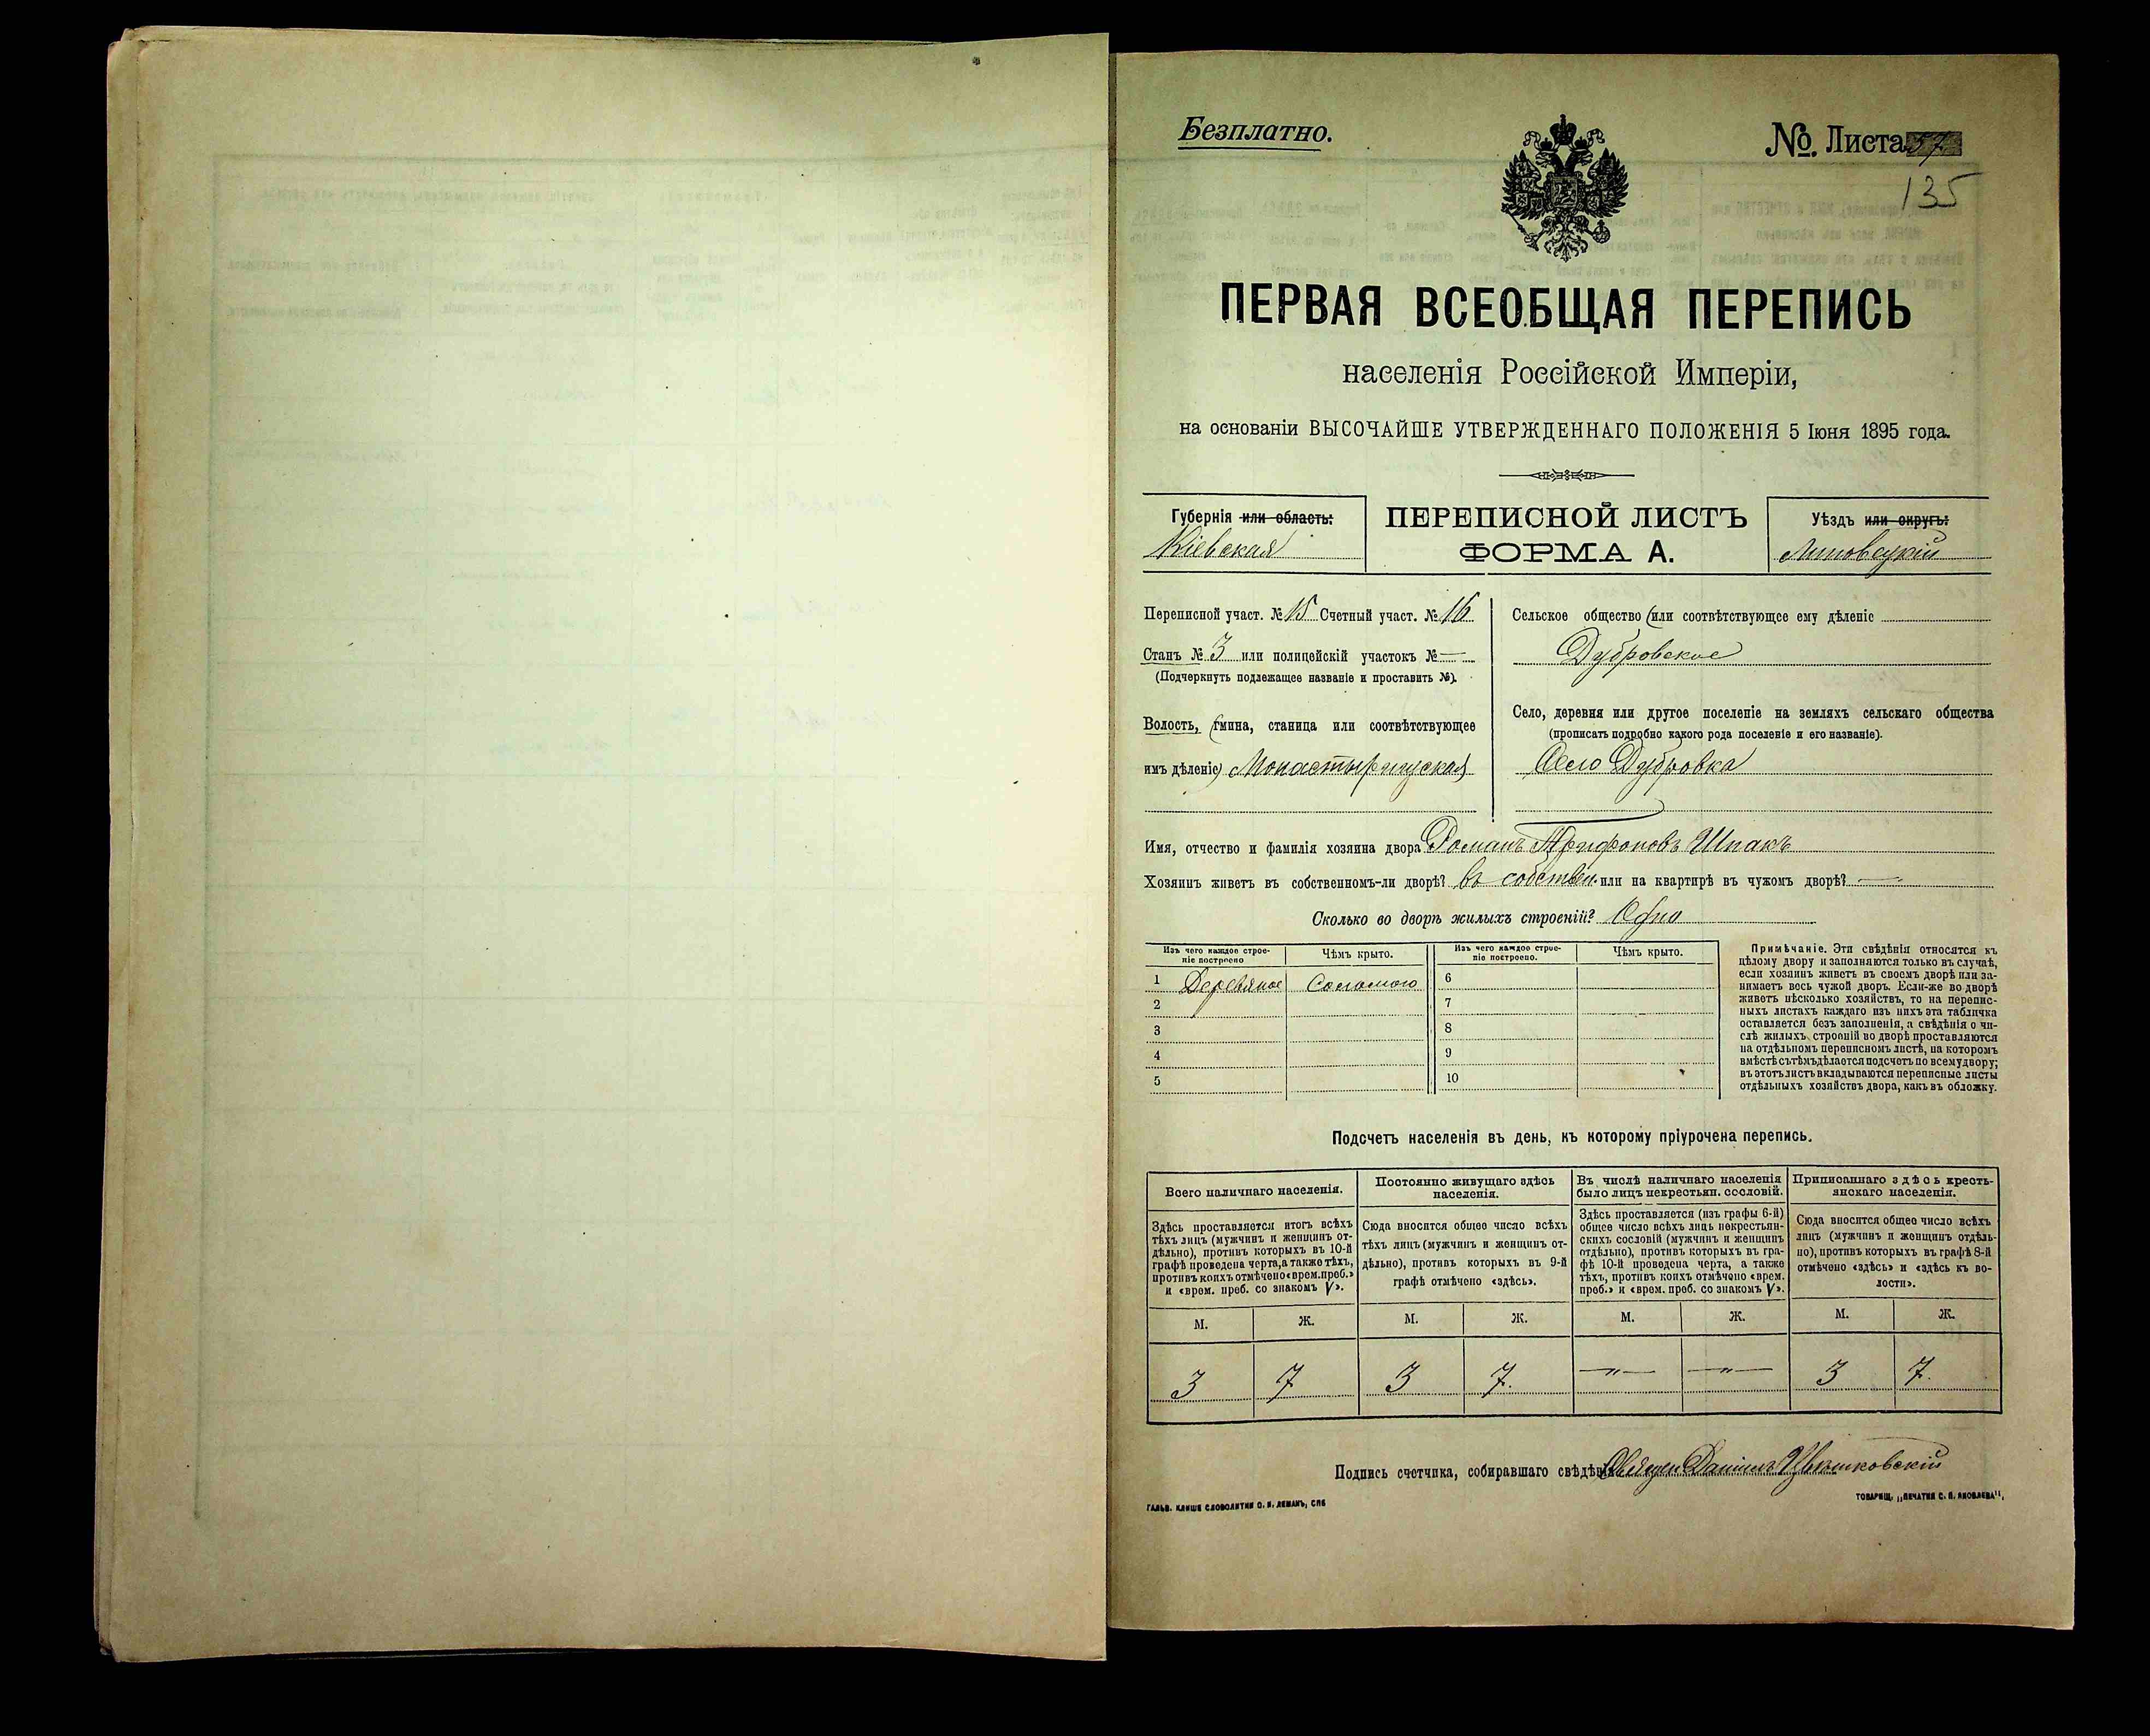 Безплатно.
№ Листа 57
135
ПЕРВАЯ ВСЕОБЩАЯ ПЕРЕПИСЬ
населенія Россійской Имперіи,
на основаніи ВЫСОЧАЙШЕ УТВЕРЖДЕННАГО ПОЛОЖЕНІЯ 5 Іюня 1895 года.
Губернія или область:
Кіевская
ПЕРЕПИСНОЙ ЛИСТЪ
ФОРМА А.
Уѣздъ или округъ:
Липовецкій
Переписной участ. № 15 Счетный участ. № 16
Станъ № 3 или полицейскій участокъ № —
(Подчеркнуть подлежащее названіе и проставить №).
Волость, (гмина, станица или соотвѣтствующее
имъ дѣленіе) Монастырищская
Сельское общество (или соотвѣтствующее ему дѣленіе
Дубровское
Село, деревня или другое поселеніе на земляхъ сельскаго общества
(прописать подробно какого рода поселеніе и его названіе).
Село Дубровка
Имя, отчество и фамилія хозяина двора Романъ Трифоновъ Шпакъ
Хозяинъ живетъ въ собственномъ-ли дворѣ? въ собствен. или на квартирѣ въ чужомъ дворѣ? —
Сколько во дворѣ жилыхъ строеній? Одно
Изъ чего каждое строе-
ніе построено
Чѣмъ крыто.
Изъ чего каждое строе-
ніе построено.
Чѣмъ крыто.
1 Деревяное Соломою
2
3
4
5
6
7
8
9
10
Примѣчаніе. Эти свѣдѣнія относятся къ
цѣлому двору и заполняются только въ случаѣ,
если хозяинъ живетъ въ своемъ дворѣ или за-
нимаетъ весь чужой дворъ. Если-же во дворѣ
живетъ нѣсколько хозяйствъ, то на перепис-
ныхъ листахъ каждаго изъ нихъ эта табличка
оставляется безъ заполненія, а свѣдѣнія о чи-
слѣ жилыхъ строеній во дворѣ проставляются
на отдѣльномъ переписномъ листѣ, на которомъ
вмѣстѣ съ тѣмъ дѣлается подсчетъ по всему двору;
въ этотъ листъ вкладываются переписные листы
отдѣльныхъ хозяйствъ двора, какъ въ обложку.
Подсчетъ населенія въ день, къ которому пріурочена перепись.
Всего наличнаго населенія.
Постоянно живущаго здѣсь
населенія.
Въ числѣ наличнаго населенія
было лицъ некрестьян. сословій.
Приписаннаго здѣсь кресть-
янскаго населенія.
Здѣсь проставляется итогъ всѣхъ
тѣхъ лицъ (мужчинъ и женщинъ от-
дѣльно), противъ которыхъ въ 10-й
графѣ проведена черта, а также тѣхъ,
противъ коихъ отмѣчено «врем. преб.»
и «врем. преб. со знакомъ V».
Сюда вносится общее число всѣхъ
тѣхъ лицъ (мужчинъ и женщинъ от-
дѣльно), противъ которыхъ въ 9-й
графѣ отмѣчено «здѣсь».
Здѣсь проставляется (изъ графы 6-й)
общее число всѣхъ лицъ некрестьян-
скихъ сословій (мужчинъ и женщинъ
отдѣльно), противъ которыхъ въ гра-
фѣ 10-й проведена черта, а также
тѣхъ, противъ коихъ отмѣчено «врем.
преб.» и «врем. преб. со знакомъ V».
Сюда вносится общее число всѣхъ
лицъ (мужчинъ и женщинъ отдѣль-
но), противъ которыхъ въ графѣ 8-й
отмѣчено «здѣсь» и «здѣсь къ во-
лости».
М. Ж. М. Ж. М. Ж. М. Ж.
3 7 3 7. —"— —"— 3 7.
Подпись счетчика, собиравшаго свѣдѣнія Даніилъ
ГАЛЬВ. КЛИШЕ СЛОВОЛИТНИ О. И. ЛЕМАНЪ, СПБ
ТОВАРИЩ. „ПЕЧАТНЯ С. П. ЯКОВЛЕВА",